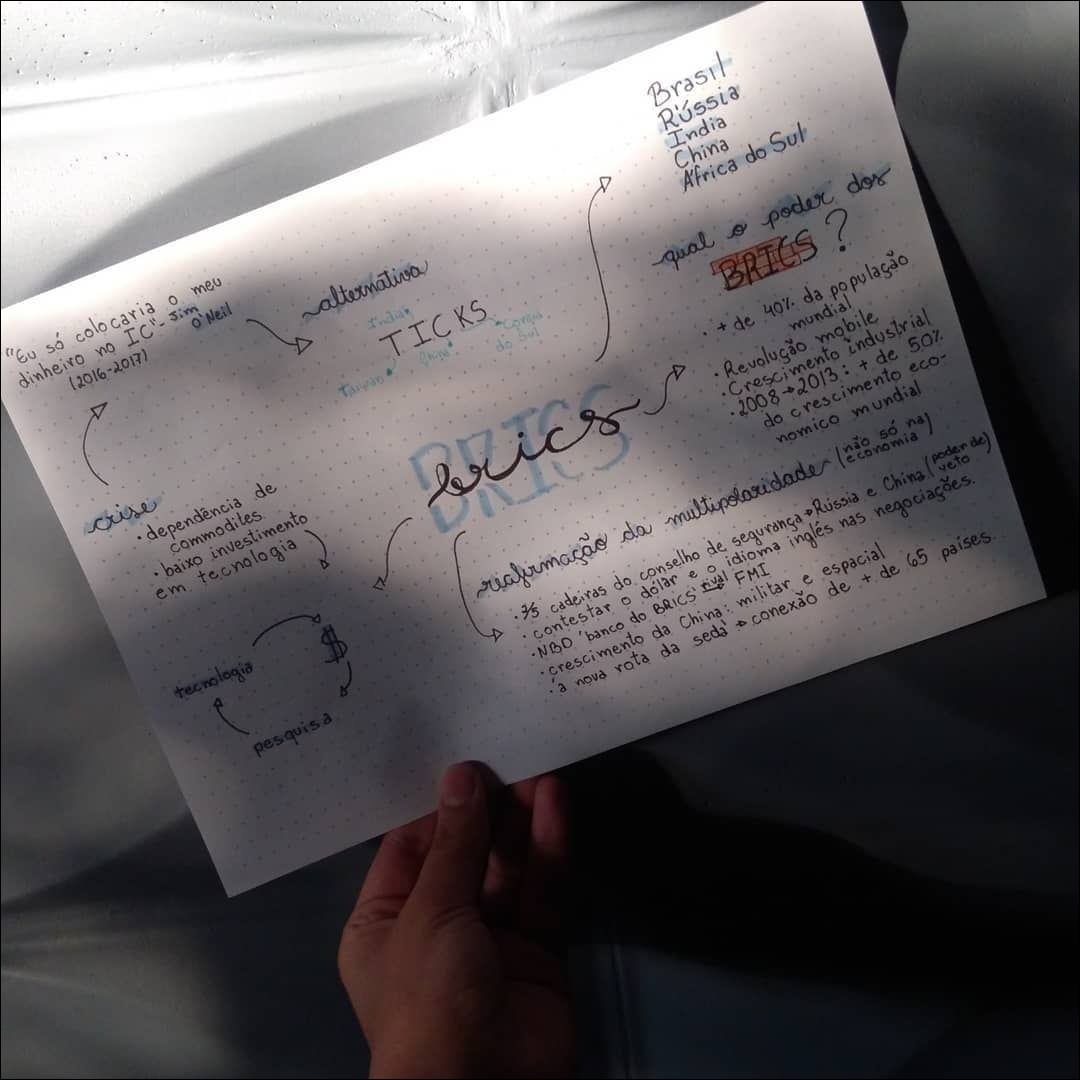 Brasil
Rússia
India
China
Africa do Sul
qual o poder dos
BRICS?
. + de 40% da população
mundial
. Revolução mobile
. Crescimento industrial
. 2008 → 2013: + de 50%
do crescimento eco-
nomico mundial
"Eu só colocaria o meu
dinheiro no IC" - Jim
O'Neil
(2016-2017)
alternativa
TICKS
India
China
Taiwan
Coreia
do Sul
BRICS
brics
crise
. dependência de
commodiles
. baixo investimento
em tecnologia
$
tecnologia
pesquisa
reafirmação da multipolaridade (não só na
economia)
. 2/5 cadeiras do conselho de segurança → Rússia e China (poder de
veto)
. contestar o dólar e o idioma inglês nas negociações.
. NBD 'banco do BRICS' rival FMI
. crescimento da China: militar e espacial
. 'a nova rota da seda' → conexão de + de 65 países.